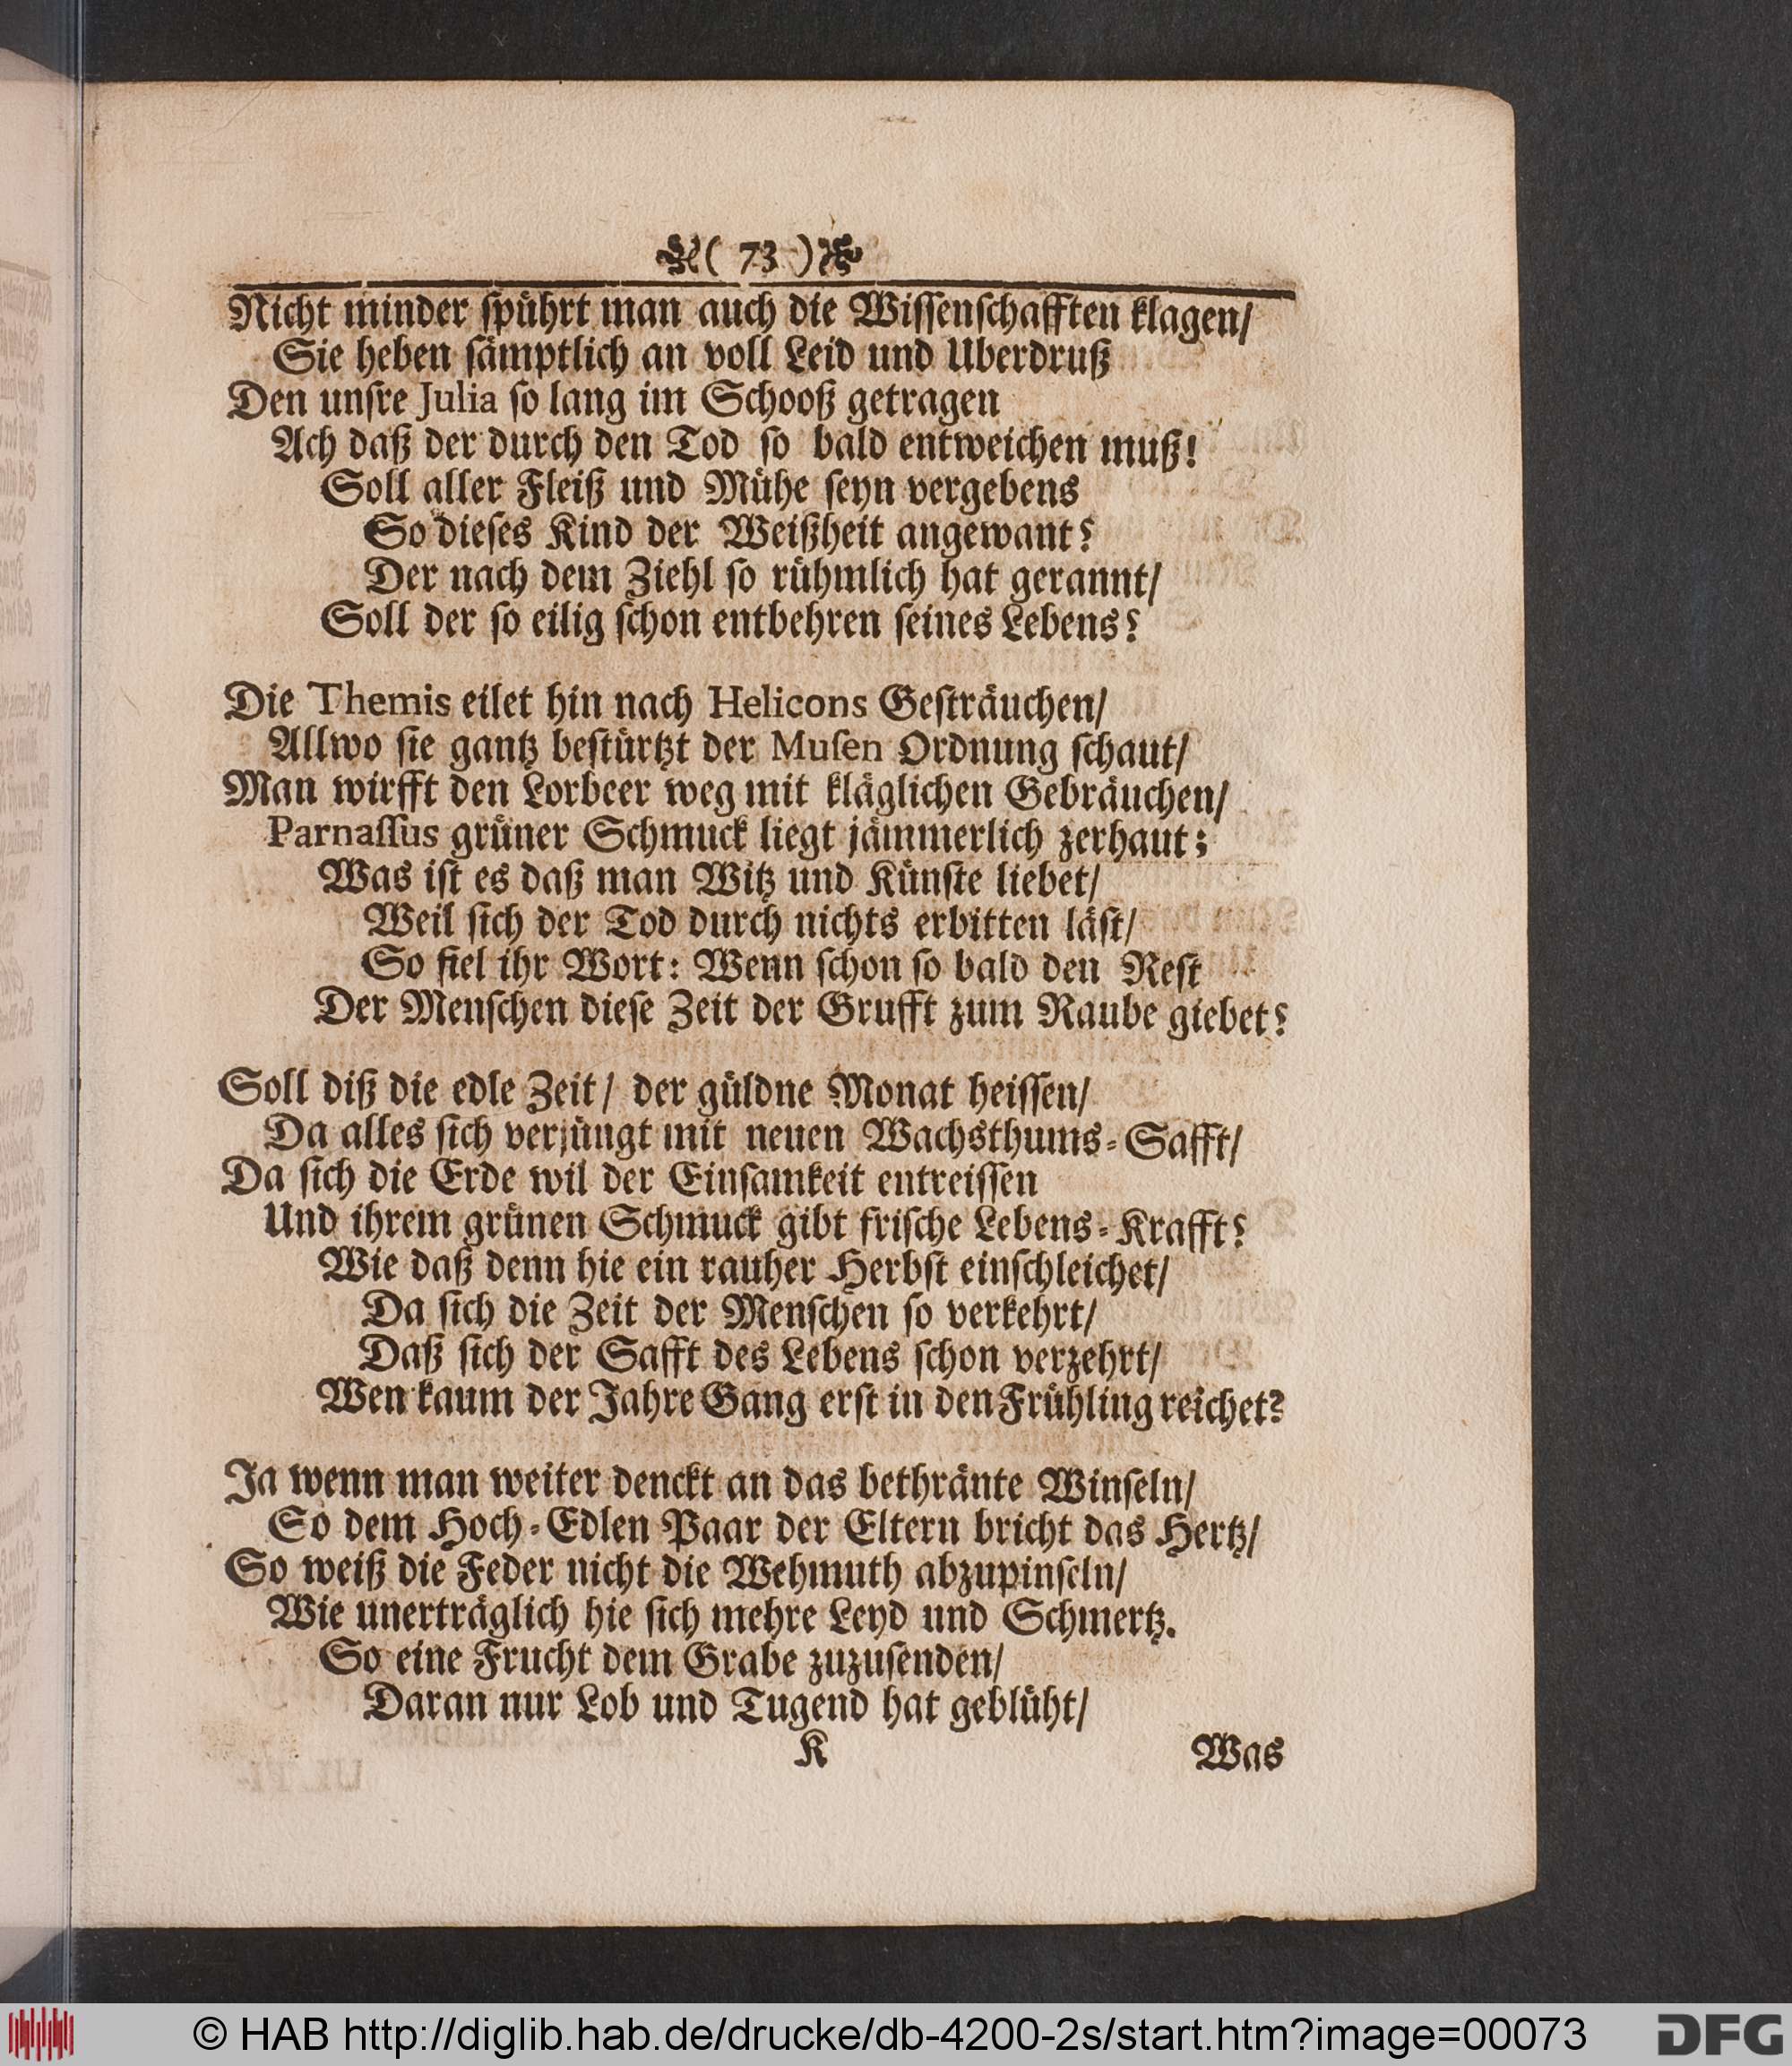 ( 73 )
Nicht minder ſpührt man auch die Wiſſenſchafften klagen/
Sie heben ſämptlich an voll Leid und Uberdruß
Den unſre Julia ſo lang im Schooß getragen
Ach daß der durch den Tod ſo bald entweichen muß!
Soll aller Fleiß und Mühe ſeyn vergebens
So dieſes Kind der Weißheit angewant?
Der nach dem Ziehl ſo rühmlich hat gerannt/
Soll der ſo eilig ſchon entbehren ſeines Lebens?
Die Themis eilet hin nach Helicons Geſträuchen/
Allwo ſie gantz beſtürtzt der Muſen Ordnung ſchaut/
Man wirfft den Lorbeer weg mit kläglichen Gebräuchen/
Parnaſſus grüner Schmuck liegt jämmerlich zerhaut;
Was iſt es daß man Witz und Künſte liebet/
Weil ſich der Tod durch nichts erbitten läſt/
So fiel ihr Wort: Wenn ſchon ſo bald den Reſt
Der Menſchen dieſe Zeit der Grufft zum Raube giebet?
Soll diß die edle Zeit/ der güldne Monat heiſſen/
Da alles ſich verjüngt mit neuen Wachsthums-Safft/
Da ſich die Erde wil der Einſamkeit entreiſſen
Und ihrem grünen Schmuck gibt friſche Lebens-Krafft?
Wie daß denn hie ein rauher Herbſt einſchleichet/
Da ſich die Zeit der Menſchen ſo verkehrt/
Daß ſich der Safft des Lebens ſchon verzehrt/
Wen kaum der Jahre Gang erſt in den Frühling reichet?
Ja wenn man weiter denckt an das bethränte Winſeln/
So dem Hoch-Edlen Paar der Eltern bricht das Hertz/
So weiß die Feder nicht die Wehmuth abzupinſeln/
Wie unerträglich hie ſich mehre Leyd und Schmertz.
So eine Frucht dem Grabe zuzuſenden/
Daran nur Lob und Tugend hat geblüht/
K Was
© HAB http://diglib.hab.de/drucke/db-4200-2s/start.htm?image=00073 DFG